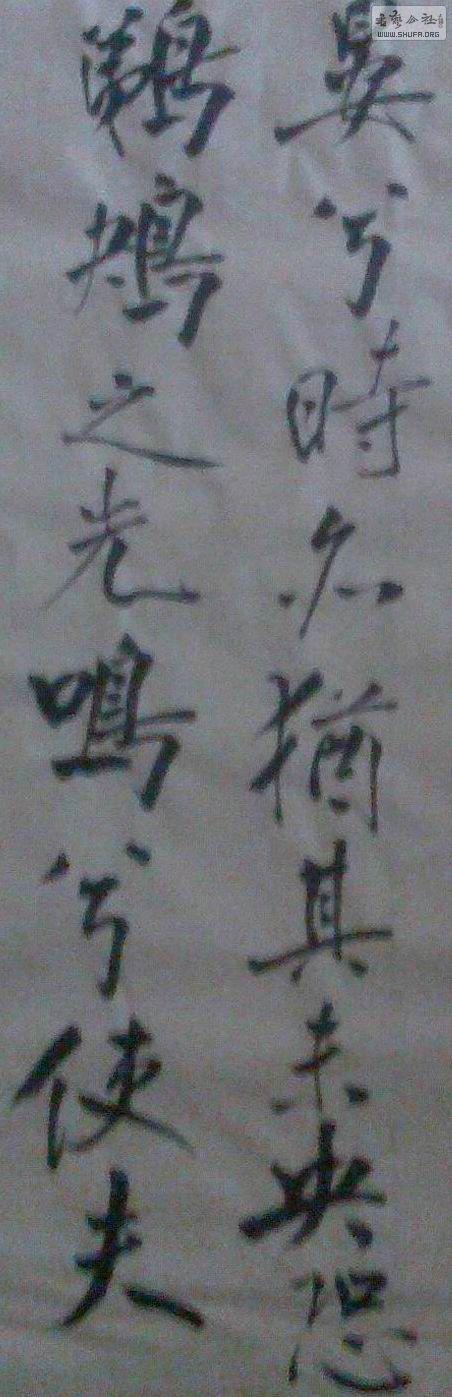 晏兮時亦猶其未央恐
鵜鴂之先鳴兮使夫
WWW.SHUFA.ORG